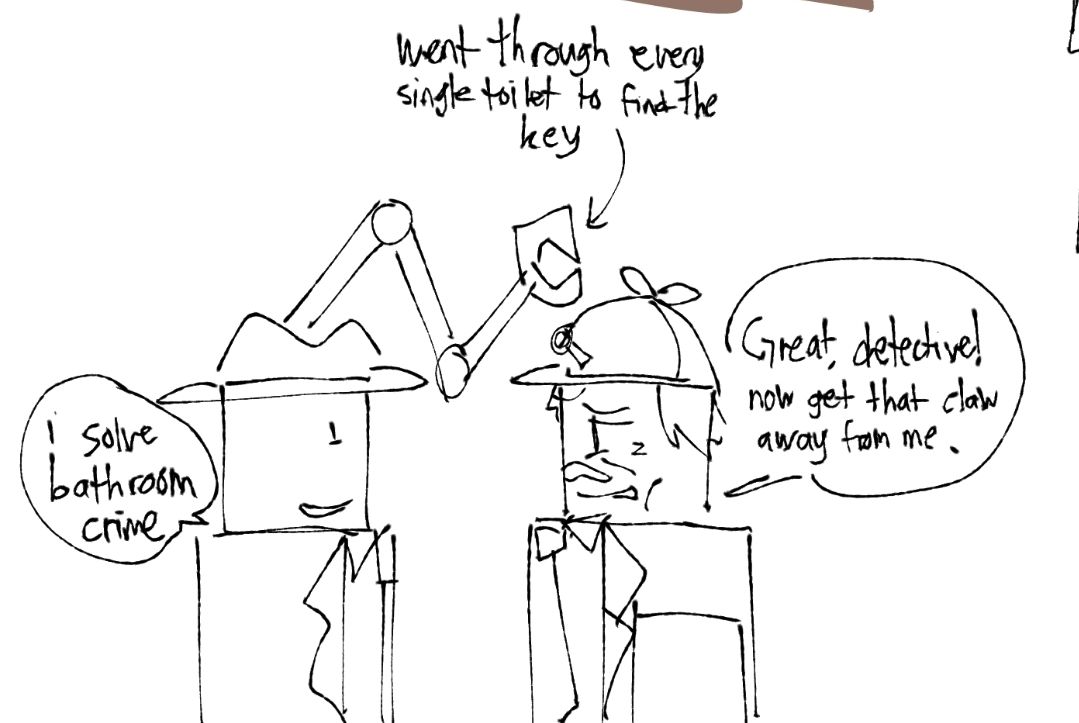 went through every
single toilet to find the
key
i solve
bathroom
crime
Great, detective!
now get that claw
away from me.
1
2